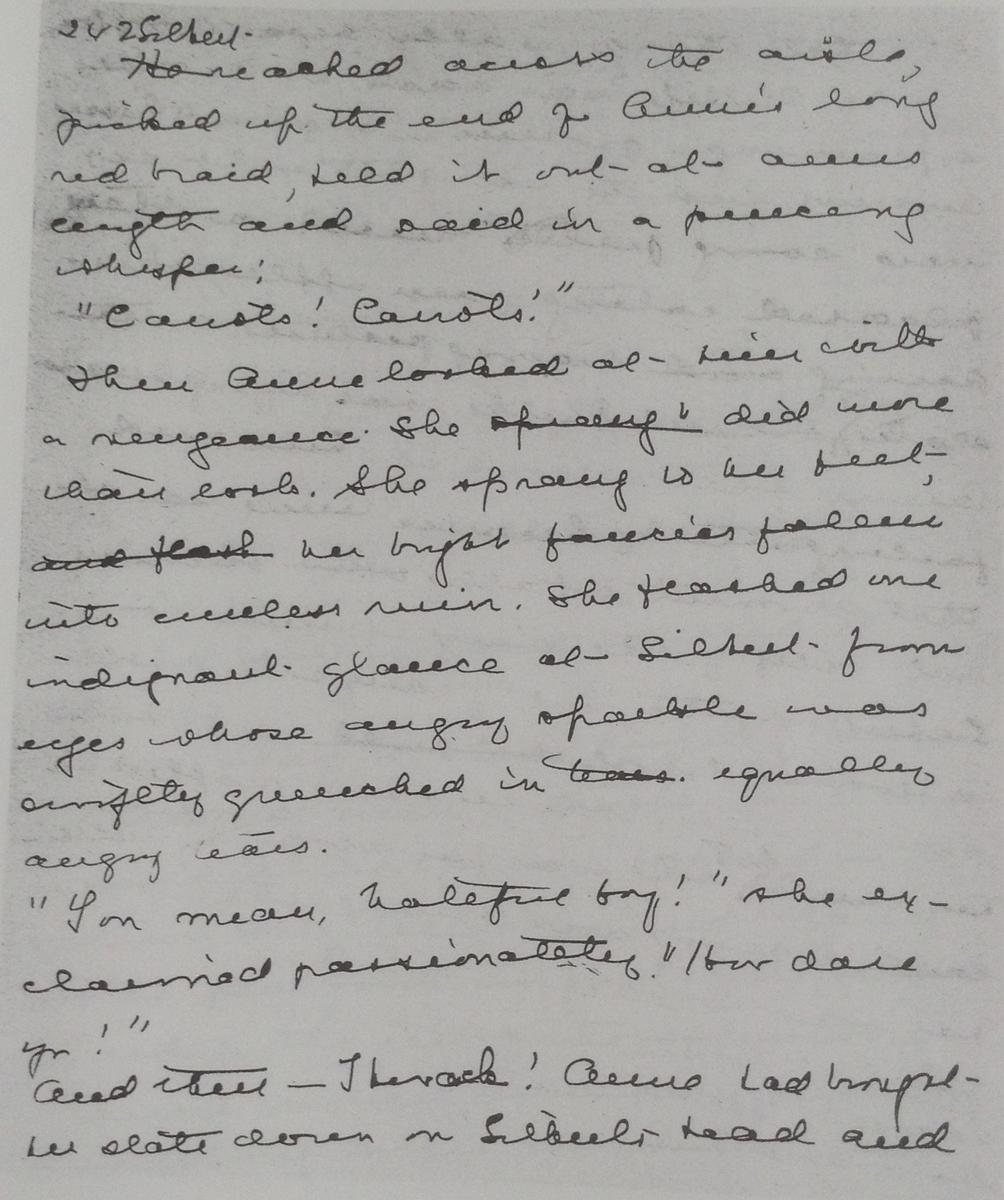 242 Gilbert
He reached across the aisle,
picked up the end of Anne's long
red braid, held it out at arms
length and said in a piercing
whisper;
"Carrots! Carrots!"
Then Anne looked at him with
a vengeance. She sprang" did more
than look. She sprang to her feet,
and flash her bright fancies fallen
into cureless ruin. She flashed one
indignant glance at Gilbert from
eyes whose angry sparkle was
swiftly quenched in tears. equally
angry tears.
"You mean, hateful boy!" she ex-
claimed passionately. "How dare
you!"
And then — Thwack! Anne had brought
her slate down on Gilbert's head and